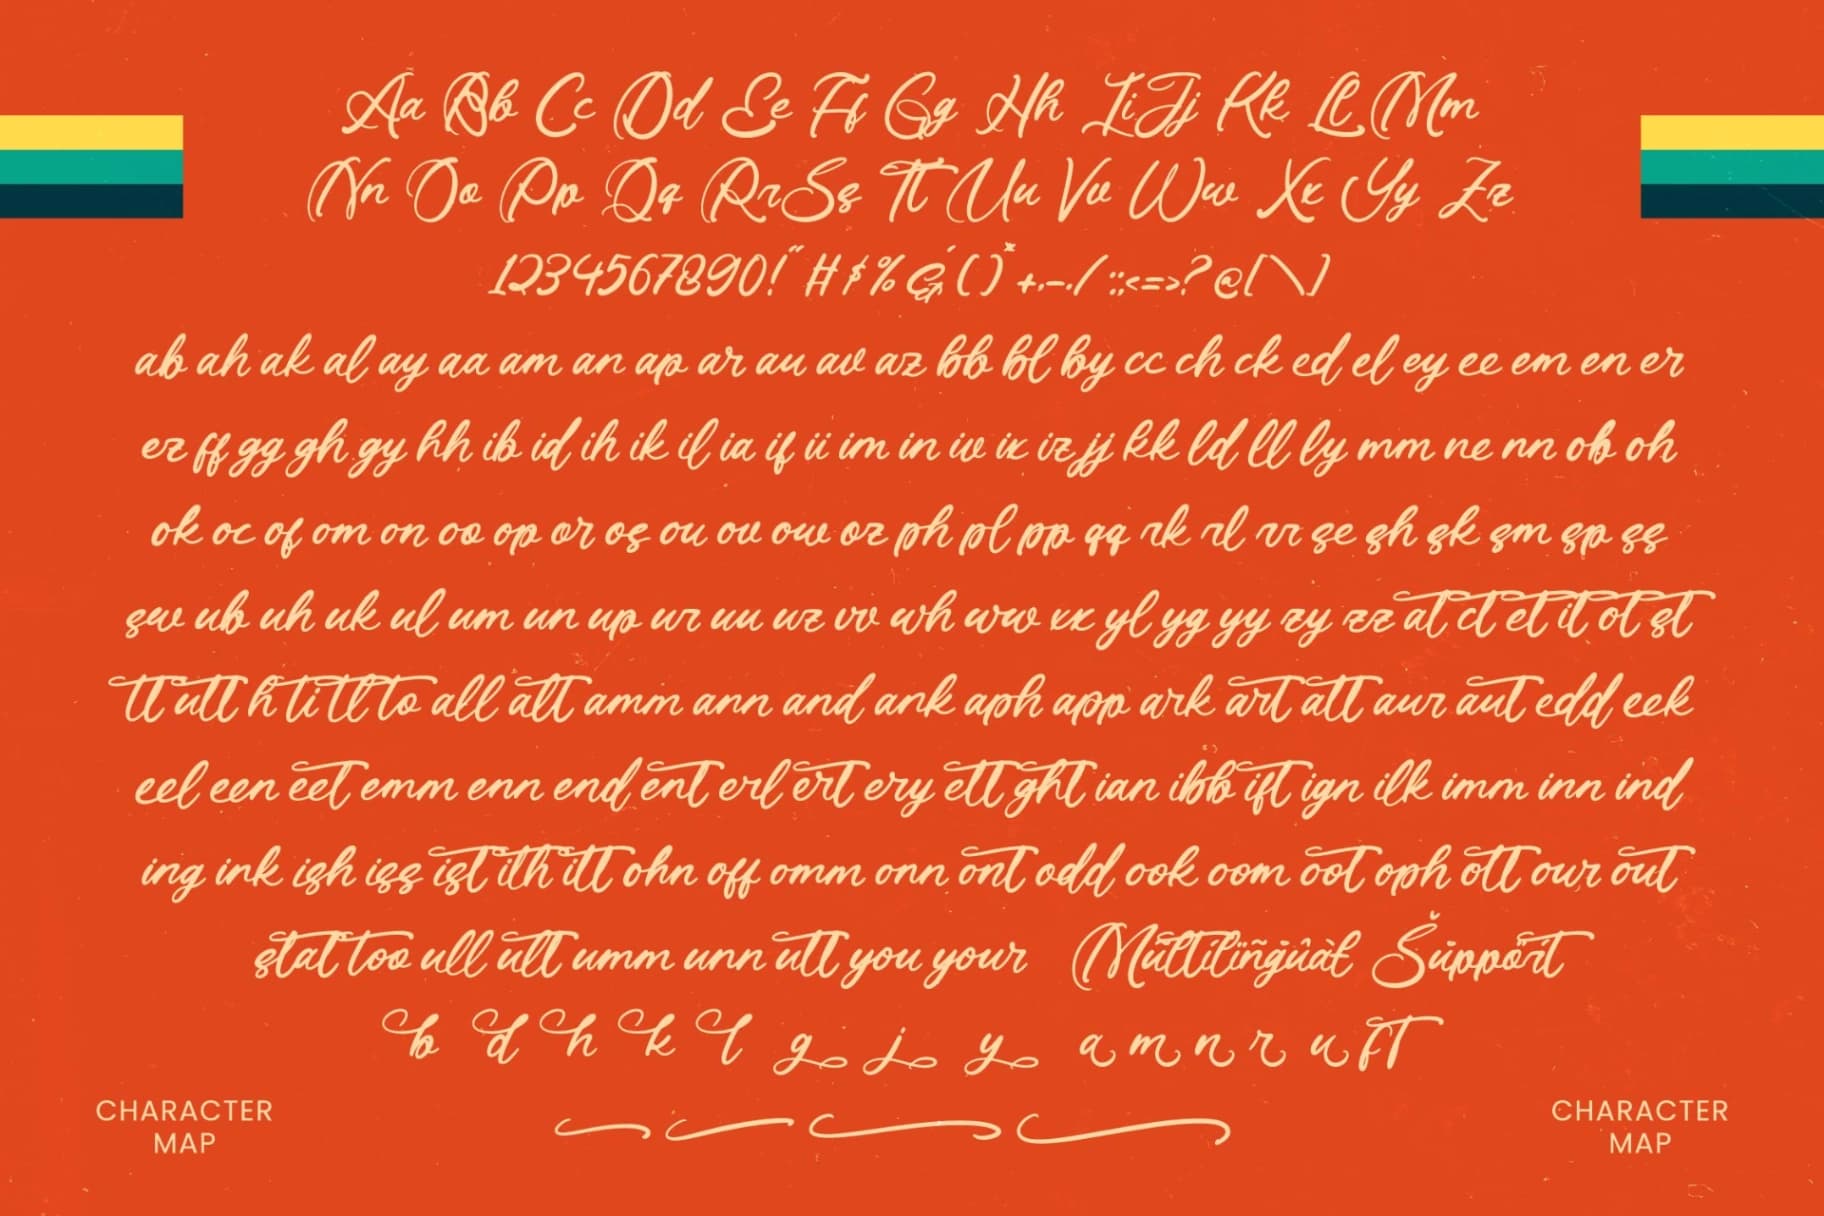 Aa Bb Cc Dd Ee Ff Gg Hh Ii Jj Kk Ll Mm
Nn Oo Pp Qq Rr Ss Tt Uu Vv Ww Xx Yy Zz
1234567890!" # $ % & ' ( ) * + , - . / : ; < = > ? @ [ \ ]
ab ah ak al ay aa am an ap ar au av az bb bl by cc ch ck ed el ey ee em en er
ez ff gg gh gy hh ib id ih ik il ia if ii im in iv ix iz jj kk ld ll ly mm ne nn ob oh
ok oc of om on oo op or os ou ov ow oz ph pl pp qq rk rl rr se sh sk sm sp ss
sw ub uh uk ul um un up ur uu uz vv wh ww xx yl yg yy zy zz at ct et it ot st
tt utt h ti tl to all alt amm ann and ank aph app ark art att aur aut edd eek
eel een eet emm enn end ent erl ert ery ett ght ian ibb ift ign ilk imm inn ind
ing ink ish iss ist ith itt ohn off omm onn ont odd ook oom oot oph ott our out
stat too ull ult umm unn utt you your
b d h k l g j y a m n r u ft
CHARACTER
MAP
CHARACTER
MAP